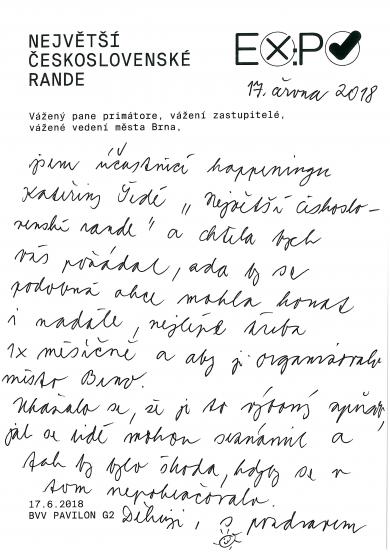 NEJVĚTŠÍ
ČESKOSLOVENSKÉ
RANDE
EX:PO
17. června 2018
Vážený pane primátore, vážení zastupitelé,
vážené vedení města Brna,
jsem účastnicí happeningu
Kateřiny Šedé „Největší českoslo-
venské rande" a chtěla bych
vás požádat, zda by se
podobná akce mohla konat
i nadále, nejlépe třeba
1x měsíčně a aby ji organizovalo
město Brno.
Ukázalo se, že je to výborný způsob,
jak se lidé mohou seznámit a
tak by bylo škoda, kdyby se v
tom nepokračovalo.
17.6.2018
BVV PAVILON G2
Děkuji, s pozdravem